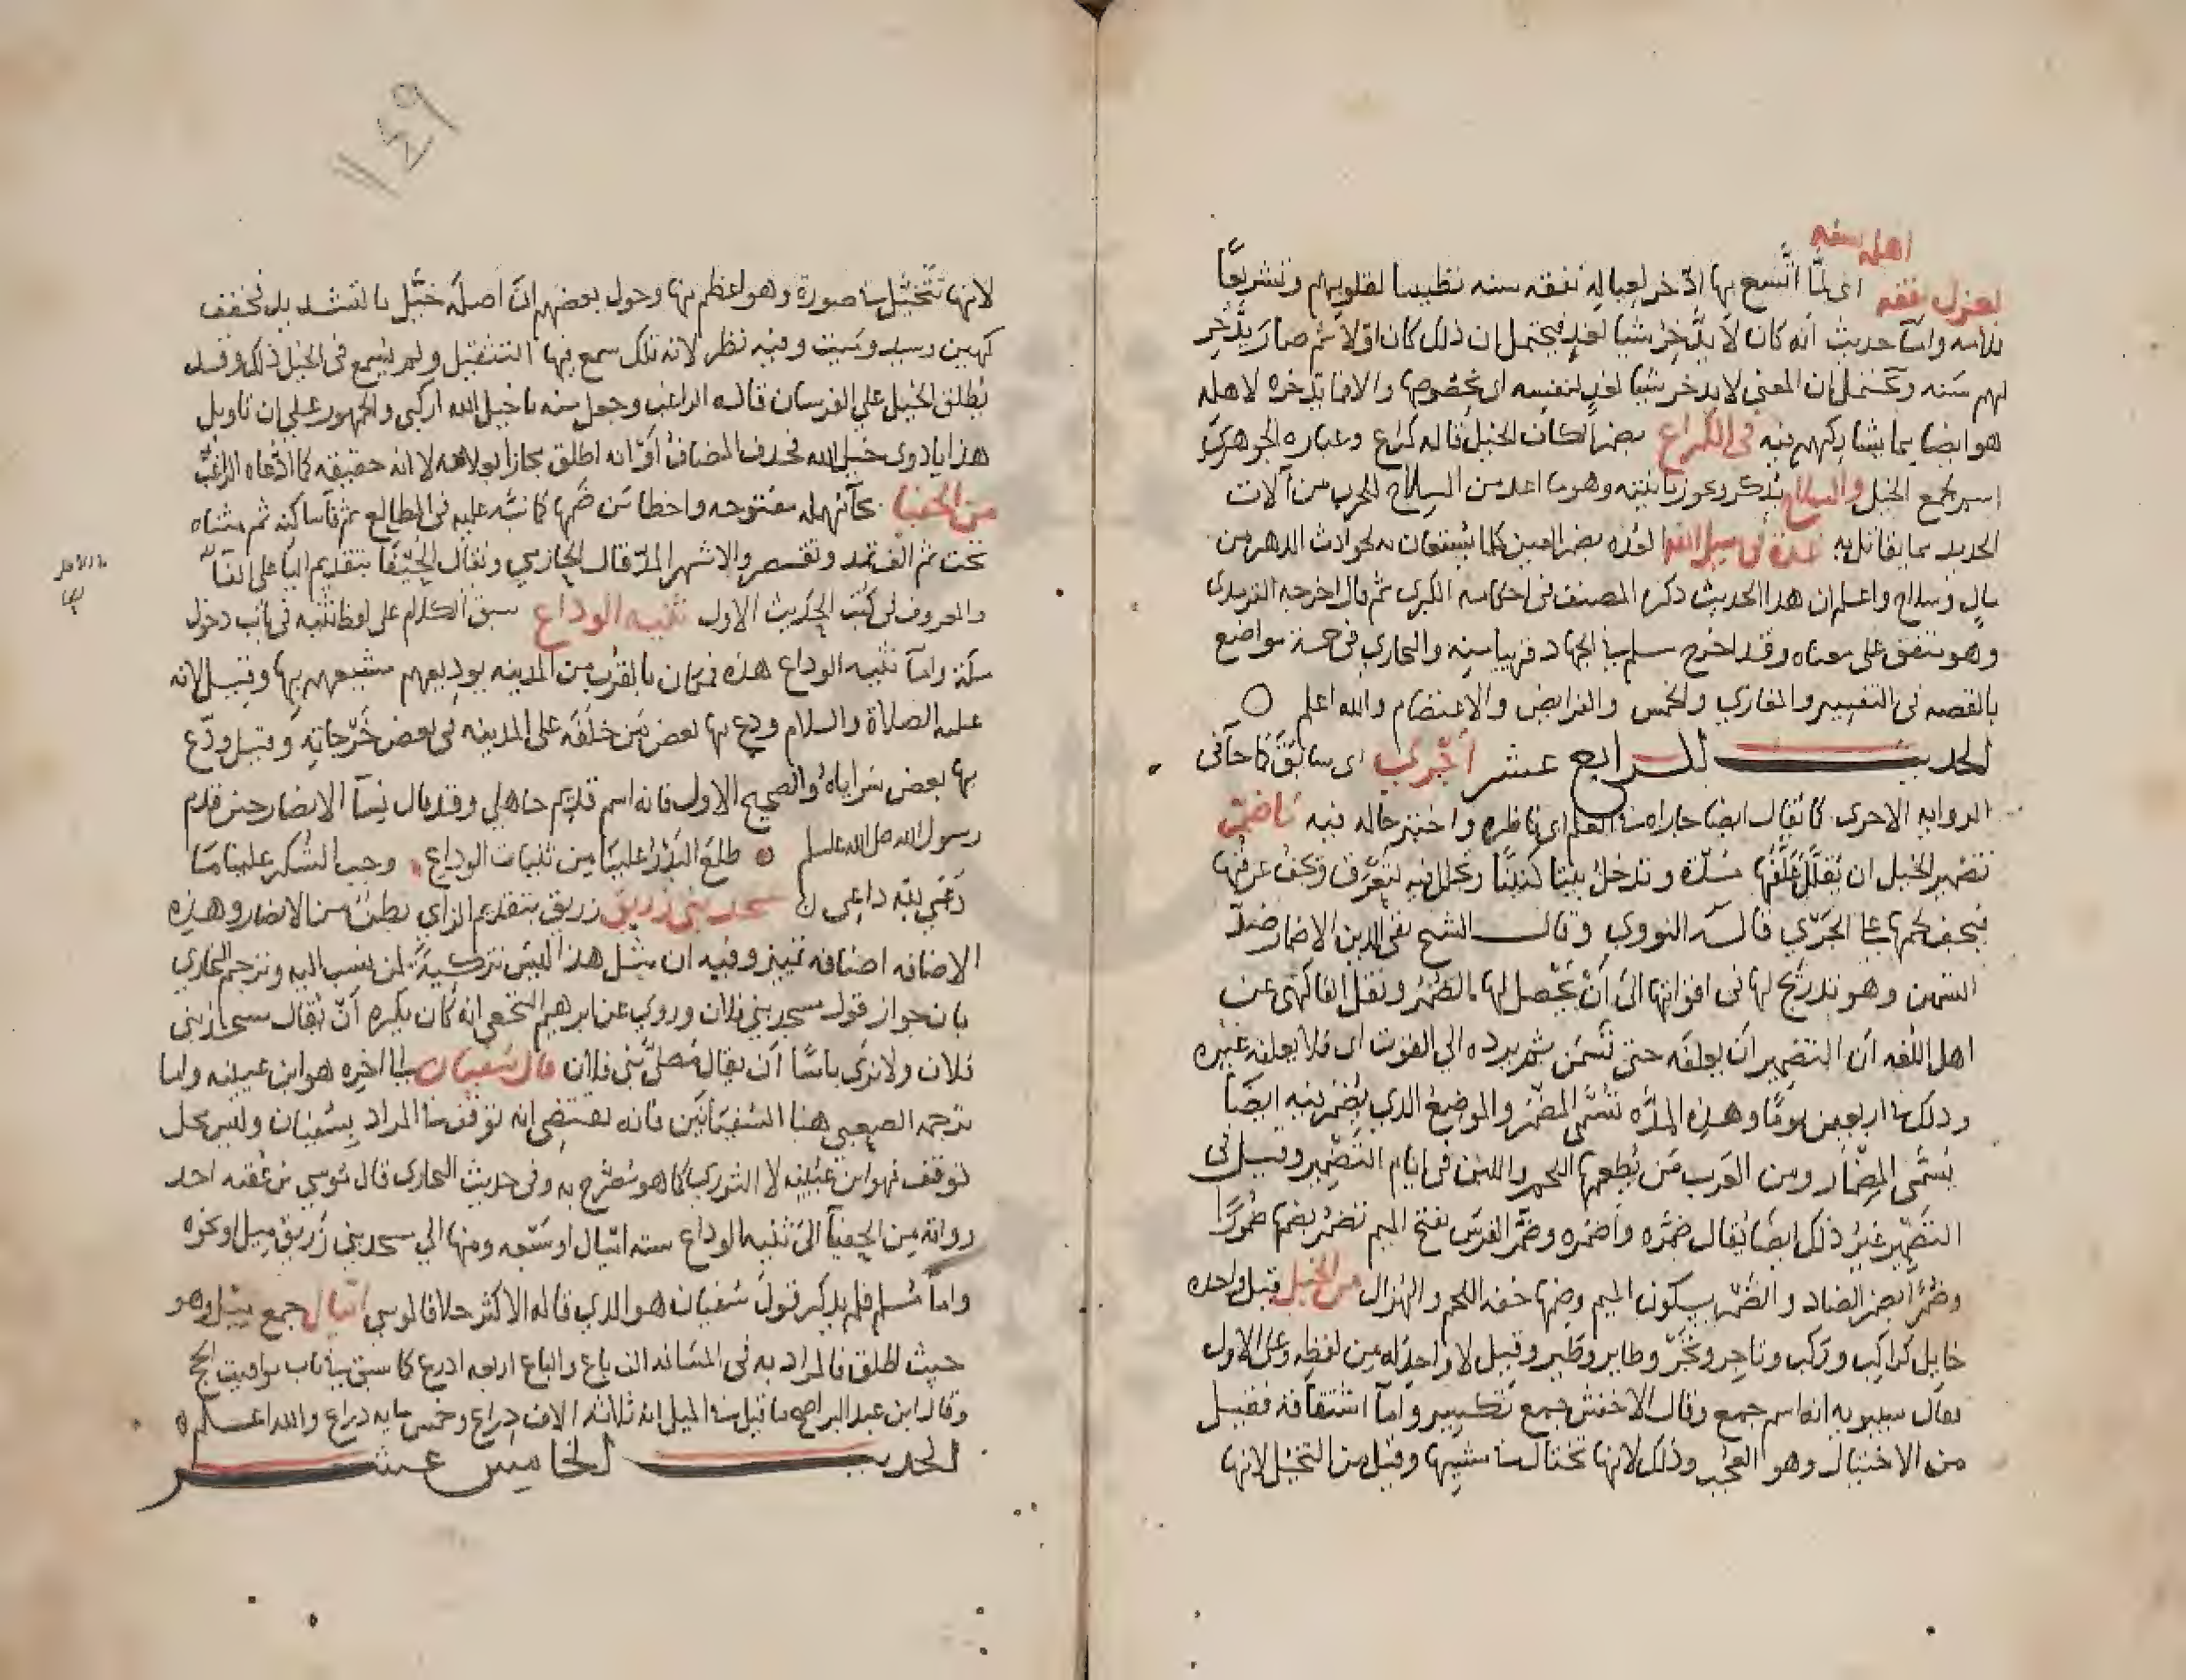 اهله سنة
يعزل نفقة اى لمّا اتّسع بها ادّخر لعياله نفقه سنه تطييبا لقلوبهم وتشريعًا
للامه وامّا حديث انه كان لا يدّخر شيا لغدٍ فيحتمل ان ذلك كان اوّلا ثم صار يدّخر
لهم سنه ويحتمل ان المعنى لا يدخر شيا لغدٍ لنفسه اى بخصوصها والا فما يدّخره لاهله
هو ايضا مما يشاركهم فيه فى الكُراع بضم الكاف الخيل قاله كراع وعباره الجوهرى
اسم لجمع الخيل والسلاح يذكر ويجوز تانيثه وهو ما اعد من السلاح للحرب من آلات
الحديد مما يقاتل به عدة فى سبيل الله العُده بضم العين كلما يُستعان به لحوادث الدهر من
مالٍ وسلاح واعلم ان هذا الحديث ذكره المصنف فى احكامه الكبرى ثم قال اخرجه الترمدى
وهو متفق على معناه وقد اخرج مسلم فى الجهاد قريبا منه والبخاري فى خمسة مواضع
بالقصه فى التفسير والمغازي والخمس والفرايض والاعتصام والله اعلم ○
الحديث الرابع عشر أجْرَي اى سابَقَ كما جآ فى
الروايه الاخرى كما يُقال ايضا جاراه فى العلم اى ناظره واختبر حاله فيه ما ضُمّر
تضمير الخيل ان يُقلّل عَلَفُها مُدّة وتدخلُ بيتا كنينًا وتجلل فيه لتَعْرَق ويَجفُ عرقُها
فيجف لحمها على الجَرْي قاله النووي وقال الشيخ تقى الدين الاضمار ضدّ
التسمين وهو تدريج لها فى اقواتها الى أنْ يحصل لها الضُمْر ونقل الفاكهى عن
اهل اللُغه ان التضمير ان يعلفه حتى تَسْمَن ثم يرده الى القوت اى فلا يعلفه غيره
وذلك فى اربعين يومًا وهذه المدّه تسَمَّى المضمر والموضع الذي يُضمر فيه ايضًا
يسَمَّى المِضْمَار ومن العَرب مَن يُطعمها اللحم واللبن فى ايام التَضْمير وقيل فى
التَضْمير غير ذلك ايضًا يُقال ضَمَّره وأضمره وضَمَر الفرس بفتح الميم يَضمُر بضمها ضُمورًا
وضَمُر ايضا بضم الضاد والضُمر بسكون الميم وضمها خفه اللحم والهُزال من الخيل قيل واحده
خايل كراكب وركب وتاجر وتجْر وطاير وطَير وقيل لا واحد له من لفظِه وعلى الاول
فقال سيبويه انه اسم جمع وقال الاخفش جمع تكسير وامّا اشتقاقه فقيل
من الاختيال وهو العجب وذلك لانها تختال فى مشيِها وقيل من التخيّل لانها
١٤٩
لانها تتخيّل فى صورة وهو اعظم منها وحول بعضهم انّ اصله خيِّل بالتشديد فخفف
كهين وسيد وميت وفيه نظر لان تلك سمع فيها التثقيل ولم يُسمع فى الخيل ذلك وقد
يُطلق الخيل على الفرسان قاله الراغب وجعل منه يا خيل الله اركبى والجمهور على ان تاويل
هذا يا ذوى خيل الله فحذف المضاف أو انه اطلق مجازا بعلاقه لا انه حقيقه كما ادّعاه الراغب
من الحفيا بحآ مهمله مفتوحه واخطا مَن ضمها كما نبّه عليه فى المطالع ثم فآ ساكنه ثم مثناه
تحت ثم الف تمد وتقصر والاشهر المدّ قال الحازمي ويُقال الحَيْفا بتقديم اليا على الفآ
والمعروف فى كُتب الحديث الاول ثنية الوداع سبق الكلام على لفظ ثنيه فى باب دخول
مكة وامّا ثنيه الوداع هذه فمكان بالقرب من المدينه يودّعهم مشيعهم بها وقيل لانه
عليه الصلاة والسلام ودع بها بعض مَن خلّفه على المدينه فى بعض خَرْجاته وقيل ودّع
بها بعض سَراياهُ والصحيح الاول فانه اسم قديم جاهلي وقد قال نسآ الانصار حين قدم
رسول الله صلى الله عليه وسلم طلعَ البَدْرُ علينا من ثنيات الوداع وجب الشكر علينا ما
دَعَى لله داعِى مسجد بني زريق زريق بتقديم الزاي بطن من الانصار وهذه
الاضافه اضافه تمييز وفيه ان مثل هذا ليسَ تزكيةً لمن ينسب اليه وترجم البخارى
باب جواز قول مسجد بني فلان وروي عن ابرهيم النخعى انه كان يكره أنْ يُقال مسجد بنى
فلان ولا نرى باسًا أن يقال مُصلّى بنى فلان قال سُفيان الى اخره هو ابن عيينه واما
ترجمه الصعبي هنا السُفيانَين فانه يقتضى انه توقف فى المراد بسُفيان وليس محل
توقف فهو ابن عُيَيْنه لا الثوري كما هو مُصَرَّح به وفى حديث البخارى قال مُوسي بن عُقبه احد
رواته من الحفيآ الى ثنيه الوداع سته اميال او سَبعه ومنها الى مسجد بني زُريق ميل او نحوه
وامّا مُسلم فلم يذكر قولَ سُفيان هو الذي قاله الاكثر خلافا لموسى اميال جمع ميل وهو
حيث اطلق فالمراد به فى المسافه الف باع والباع اربعه اذرع كما سبق فى باب مواقيت الحج
وقال ابن عبد البر اصح ما قيل فى الميل انه ثلاثه الاف ذراع وخمس مايه ذراع والله اعلم ه
الحديث الخامس عشر